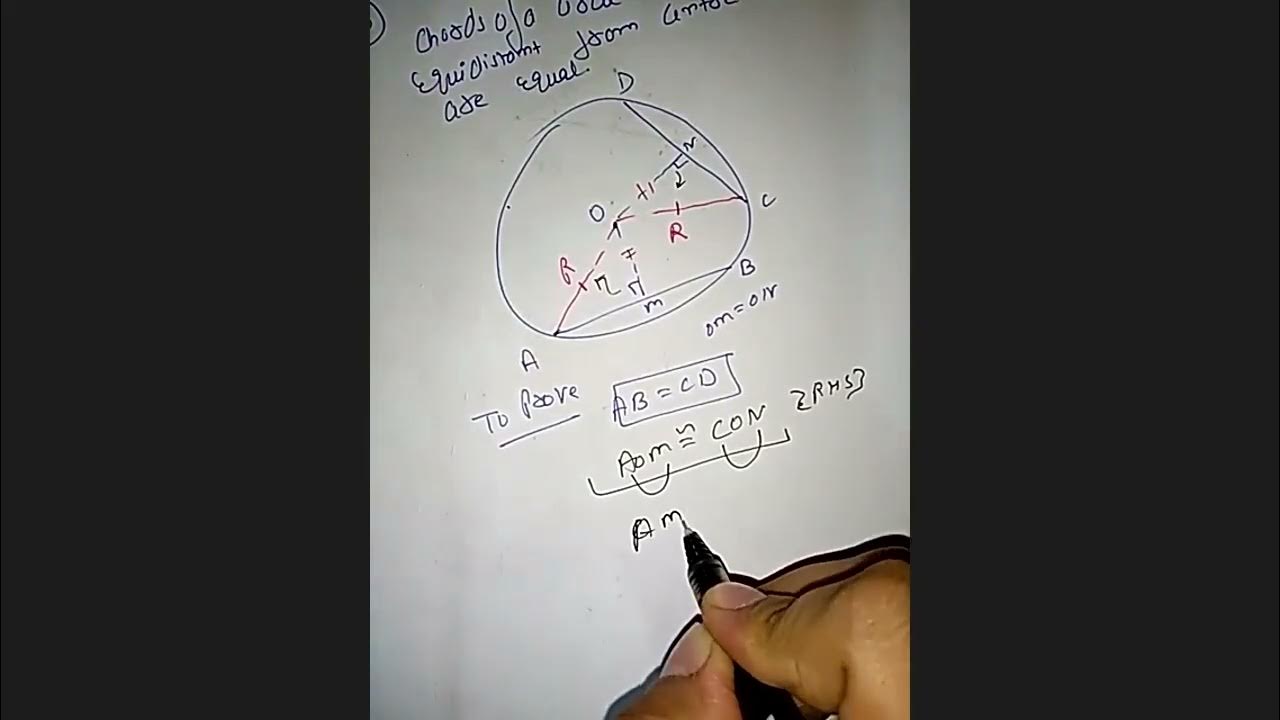 Chords of a
Equidistant from
are equal.
D
N
O
C
R
R
B
m
om = ON
A
To Prove AB = CD
AOM ≅ CON {RHS}
AM